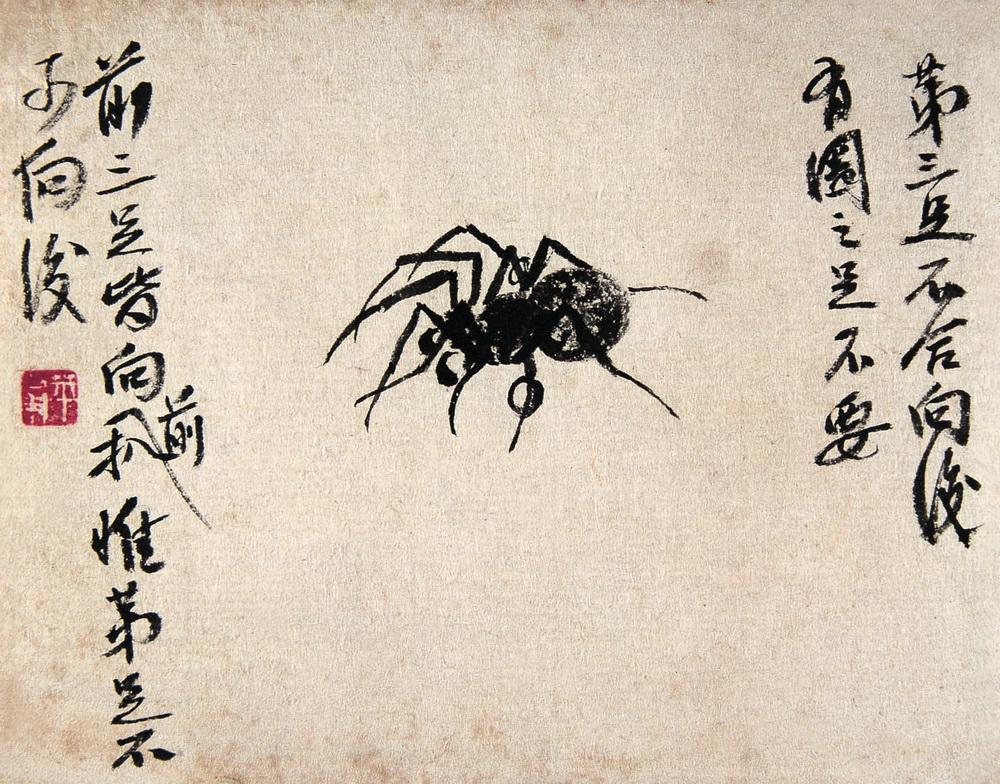 第三足不合向後
有圈之足不要
前三足皆向前扒惟第足不
可向後